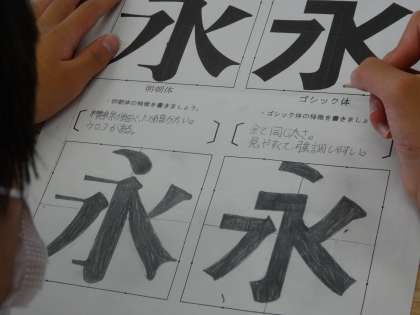 永 永
明朝体 ゴシック体
・明朝体の特徴を書きましょう。 ・ゴシック体の特徴を書きましょう
ウロコがある。
全て同じ太さ。
見やすくて強調しやすい。
永 永